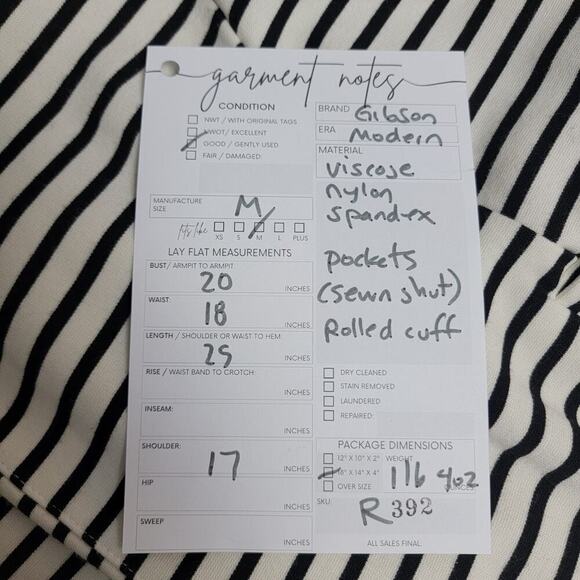 garment notes
CONDITION
NWT / WITH ORIGINAL TAGS
NWOT/ EXCELLENT
GOOD / GENTLY USED
FAIR / DAMAGED:
MANUFACTURE SIZE M
fits like XS S M L PLUS
LAY FLAT MEASUREMENTS
BUST/ ARMPIT TO ARMPIT
20 INCHES
WAIST:
18 INCHES
LENGTH / SHOULDER OR WAIST TO HEM:
25 INCHES
RISE / WAIST BAND TO CROTCH:
INCHES
INSEAM:
INCHES
SHOULDER:
17 INCHES
HIP
INCHES
SWEEP
INCHES
BRAND Gibson
ERA Modern
MATERIAL
viscose
nylon
spandex
pockets
(sewn shut)
Rolled cuff
DRY CLEANED
STAIN REMOVED
LAUNDERED
REPAIRED:
PACKAGE DIMENSIONS
12" X 10" X 2" WEIGHT
16" X 14" X 4" 1 lb 4oz
OVER SIZE OUNCES
SKU: R392
ALL SALES FINAL